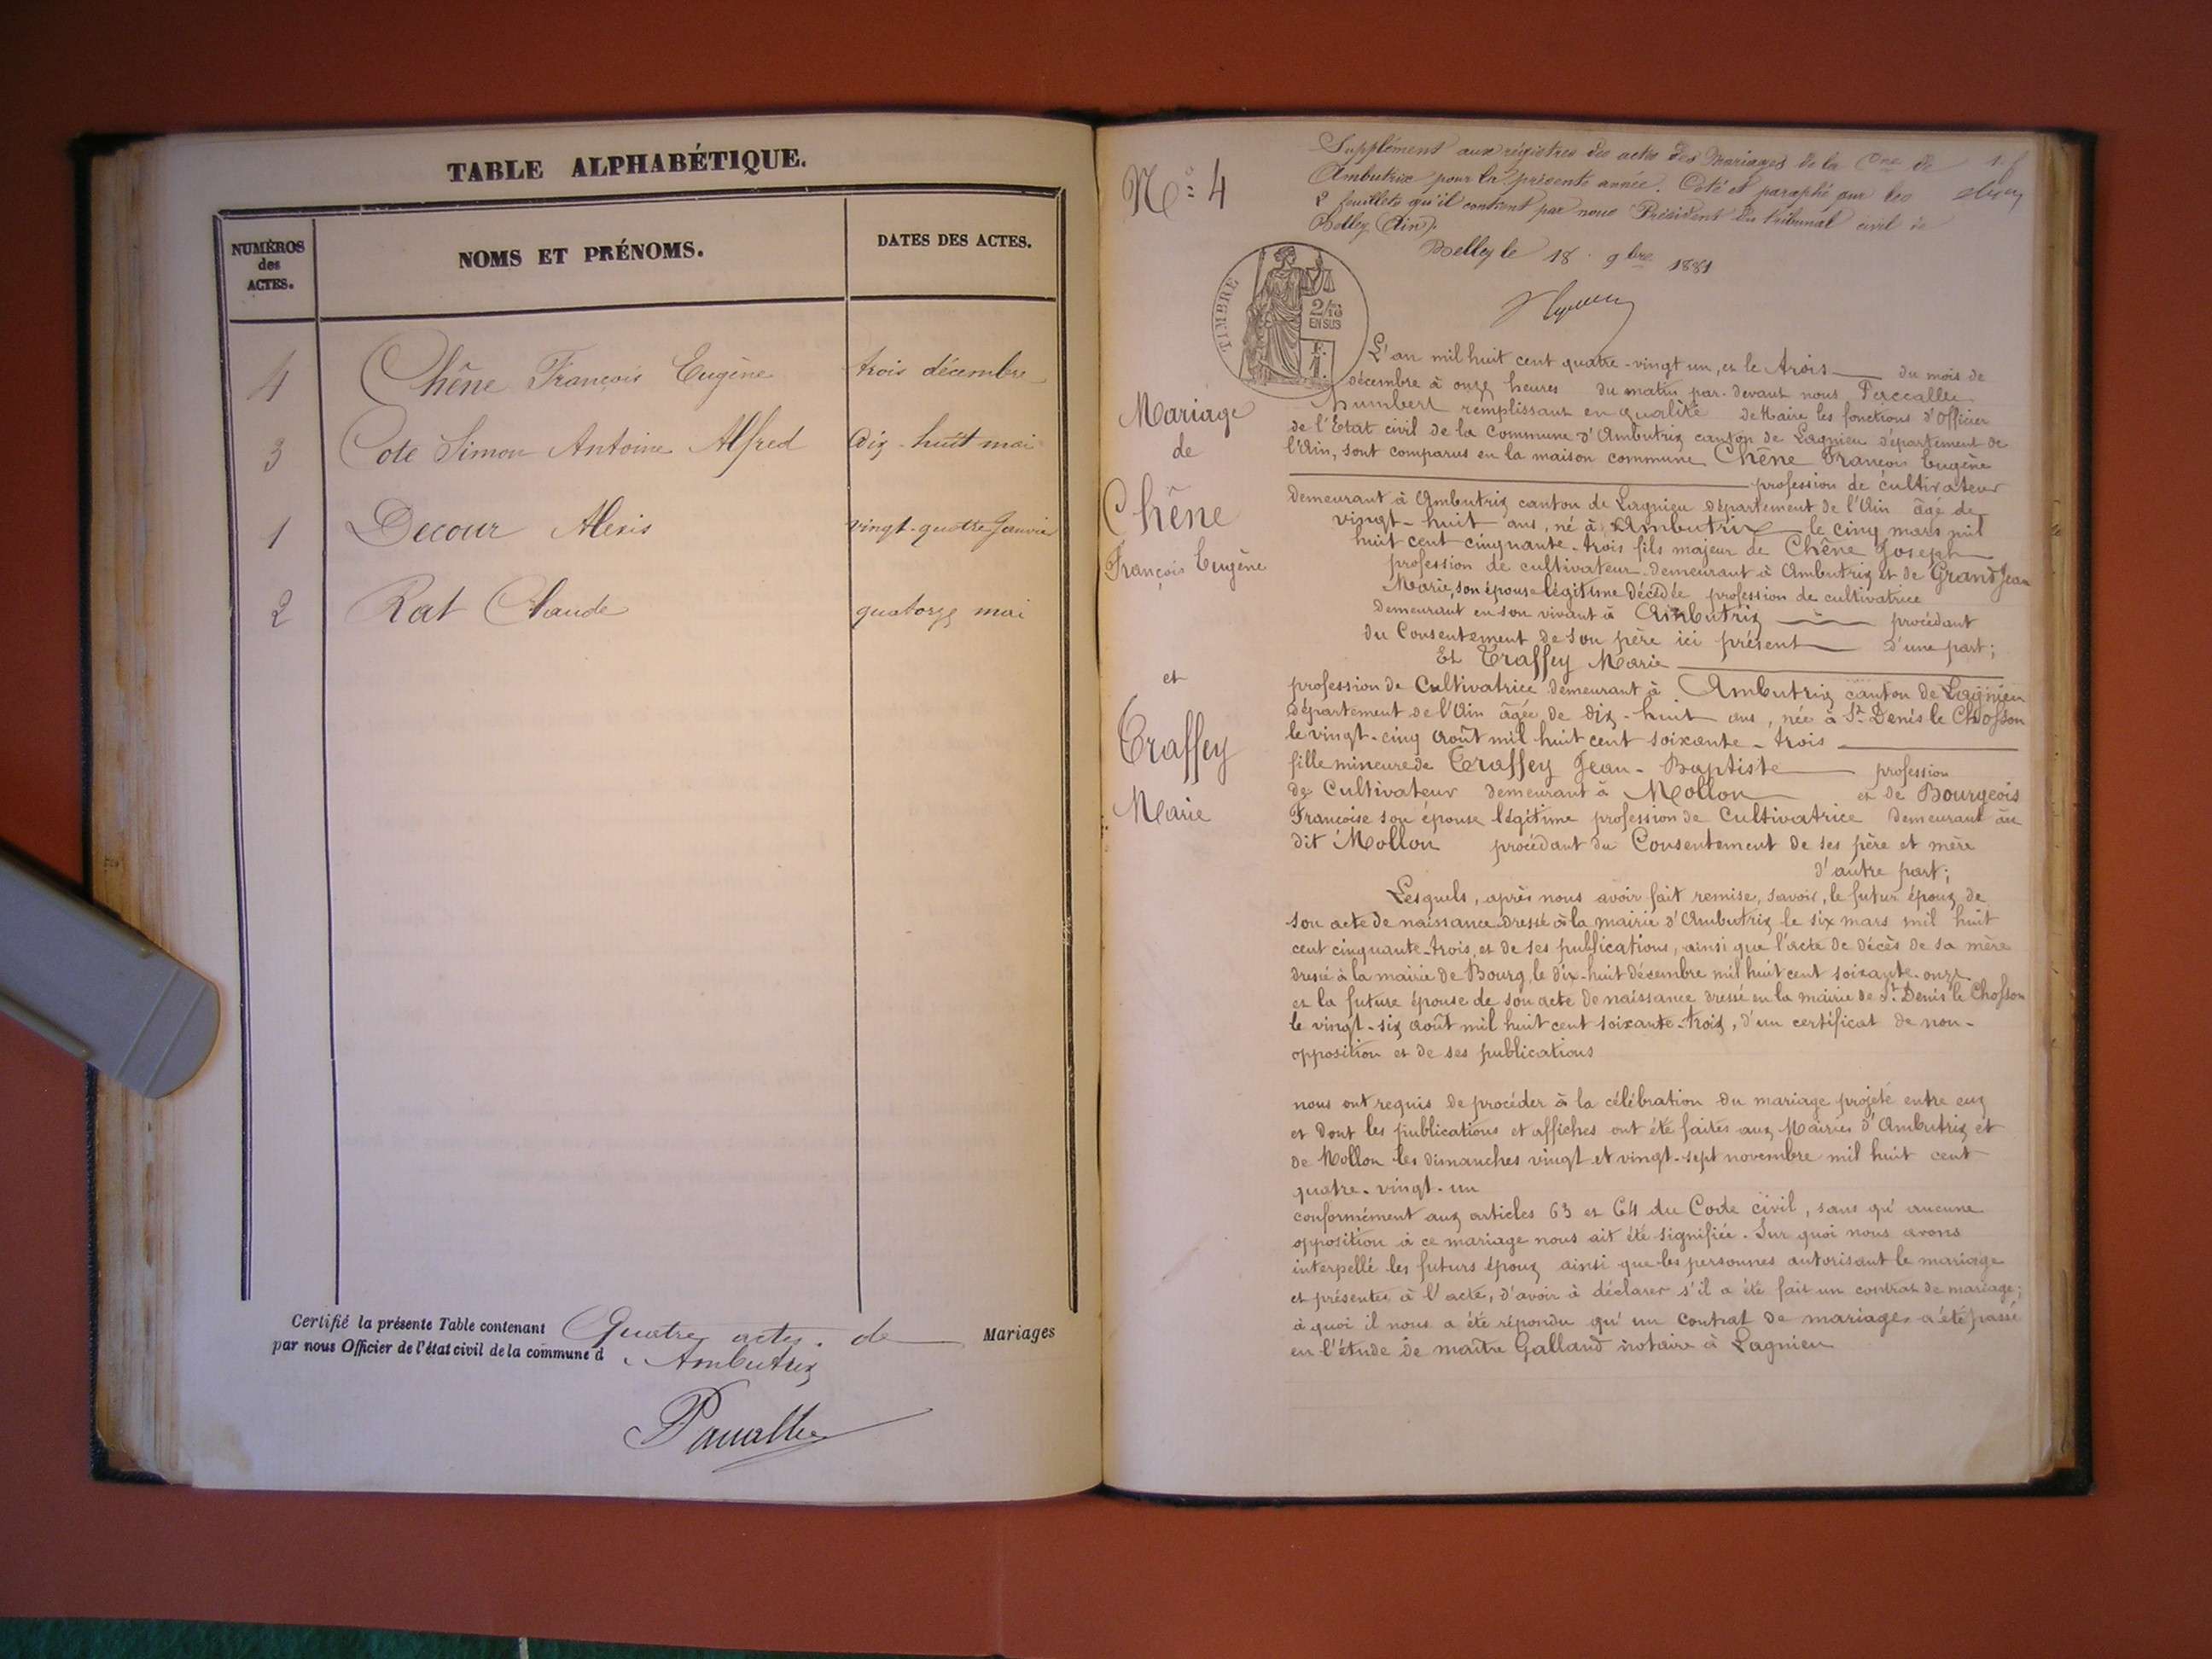 TABLE ALPHABÉTIQUE.
NUMÉROS
des
ACTES.
NOMS ET PRÉNOMS.
DATES DES ACTES.
4 Chêne François Eugène trois décembre
3 Cote Simon Antoine Alfred dix-huit mai
1 Decour Alexis vingt-quatre Janvier
2 Rat Claude quatorze mai
Certifié la présente Table contenant Quatre actes de Mariages
par nous Officier de l'état civil de la commune d'Ambutrix
No 4
Supplément aux régistres des actes des Mariages de la Cne de
Ambutrix pour la présente année. Coté et paraphé sur les
2 feuillets qu'il contient par nous Président du tribunal civil de
Belley (Ain).
Belley le 18 9bre 1881
TIMBRE
2/10
EN SUS
F.
1.
Mariage
de
Chêne
François Eugène
et
Traffey
Marie
L'an mil huit cent quatre-vingt un, et le trois du mois de
décembre à onze heures du matin par-devant nous Paccallet
Humbert remplissant en qualité de Maire les fonctions d'Officier
de l'Etat civil de la Commune d'Ambutrix canton de Lagnieu département de
l'Ain, sont comparus en la maison commune Chêne François Eugène
profession de cultivateur
demeurant à Ambutrix canton de Lagnieu département de l'Ain âgé de
vingt-huit ans, né à Ambutrix le cinq mars mil
huit cent cinquante-trois fils majeur de Chêne Joseph
profession de cultivateur demeurant à Ambutrix et de GrandJean
Marie, son épouse légitime décédée profession de cultivatrice
demeurant en son vivant à Ambutrix procédant
du Consentement de son père ici présent d'une part;
Et Traffey Marie
profession de Cultivatrice demeurant à Ambutrix canton de Lagnieu
département de l'Ain âgée de dix-huit ans, née à St Denis le Chosson
le vingt-cinq août mil huit cent soixante-trois
fille mineure de Traffey Jean-Baptiste profession
de Cultivateur demeurant à Mollon et de Bourgeois
Françoise son épouse légitime profession de Cultivatrice demeurant au
dit Mollon procédant du Consentement de ses père et mère
d'autre part;
Lesquels, après nous avoir fait remise, savoir, le futur époux de
son acte de naissance dressé à la mairie d'Ambutrix le six mars mil huit
cent cinquante-trois, et de ses publications, ainsi que l'acte de décès de sa mère
dressé à la mairie de Bourg, le dix-huit décembre mil huit cent soixante-onze
et la future épouse de son acte de naissance dressé en la mairie de St Denis le Chosson
le vingt-six août mil huit cent soixante-trois, d'un certificat de non-
opposition et de ses publications
nous ont requis de procéder à la célébration du mariage projeté entre eux
et dont les publications et affiches ont été faites aux Mairies d'Ambutrix et
de Mollon les dimanches vingt et vingt-sept novembre mil huit cent
quatre-vingt-un
conformément aux articles 63 et 64 du Code civil, sans qu'aucune
opposition à ce mariage nous ait été signifiée. Sur quoi nous avons
interpellé les futurs époux ainsi que les personnes autorisant le mariage
et présentes à l'acte, d'avoir à déclarer s'il a été fait un contrat de mariage;
à quoi il nous a été répondu qu'un contrat de mariage a été passé
en l'étude de maître Galland notaire à Lagnieu